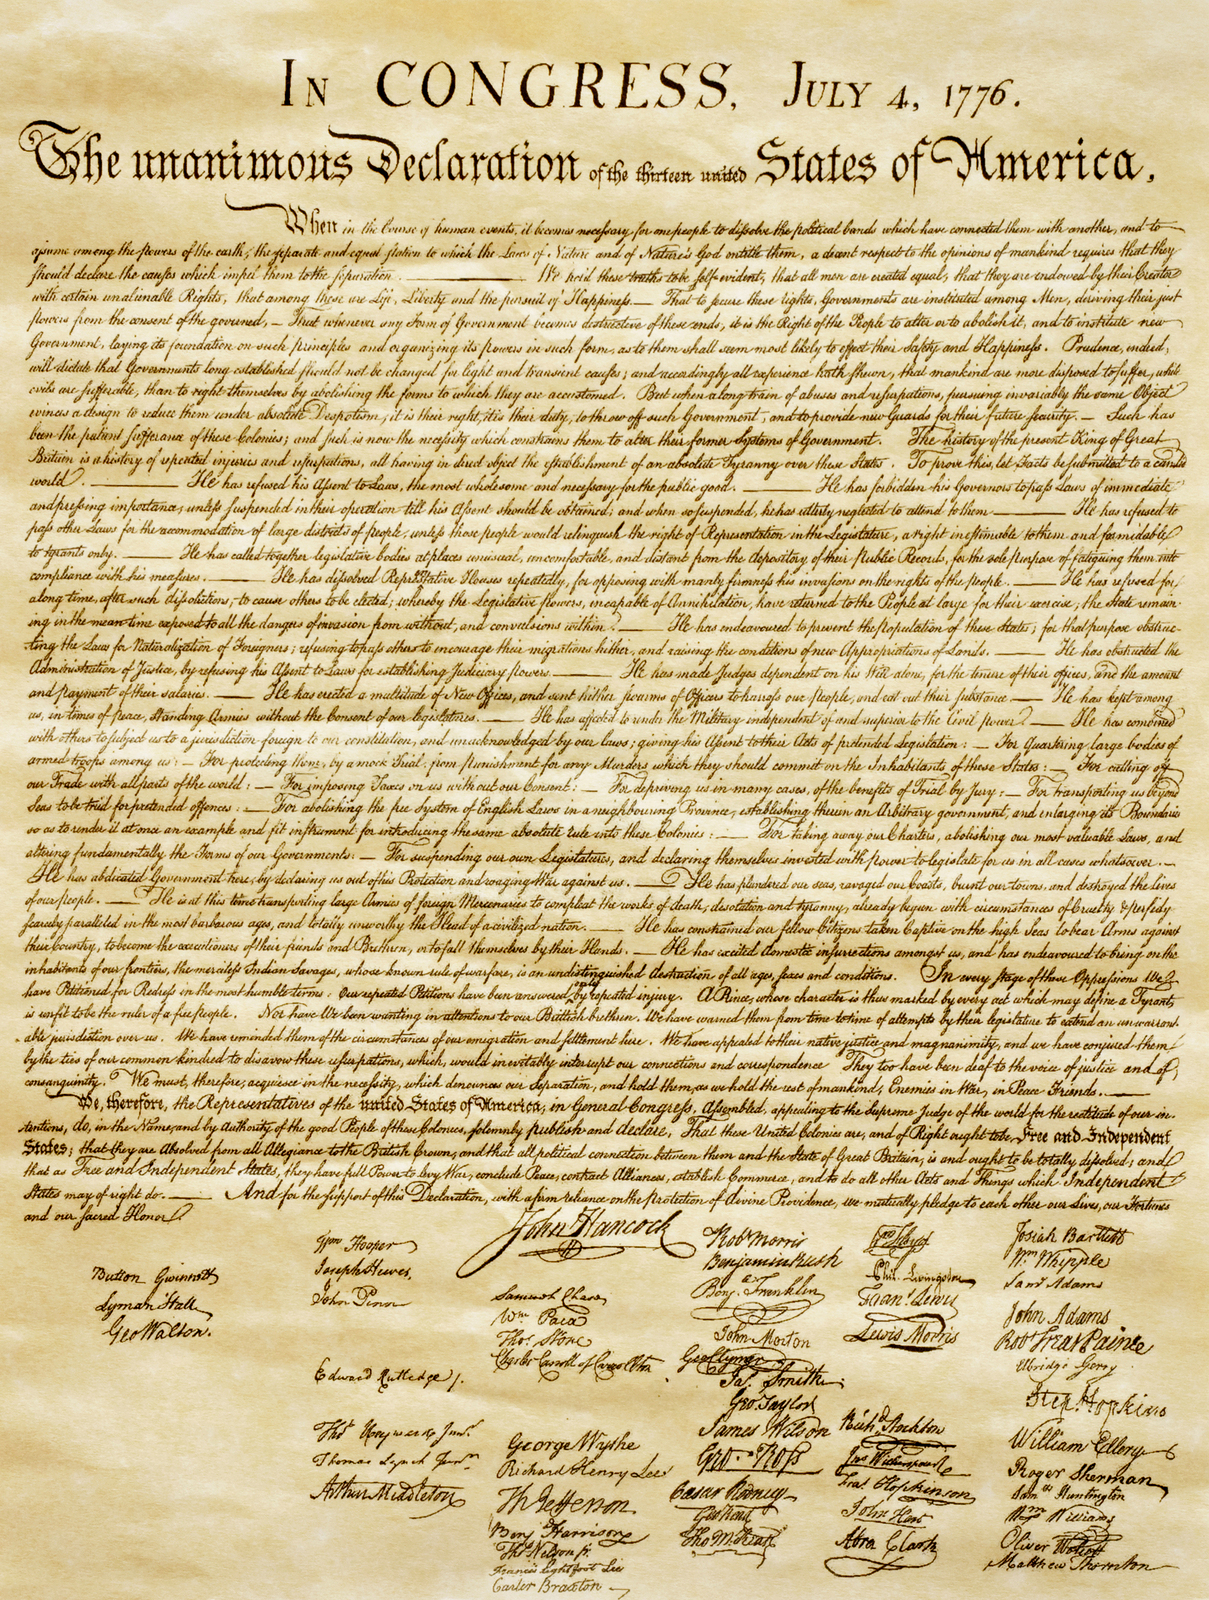 In CONGRESS, July 4, 1776.
The unanimous Declaration of the thirteen united States of America,
When in the Course of human events, it becomes necessary for one people to dissolve the political bands which have connected them with another, and to
assume among the powers of the earth, the separate and equal station to which the Laws of Nature and of Nature's God entitle them, a decent respect to the opinions of mankind requires that they
should declare the causes which impel them to the separation. We hold these truths to be self-evident, that all men are created equal, that they are endowed by their Creator
with certain unalienable Rights, that among these are Life, Liberty and the pursuit of Happiness.— That to secure these rights, Governments are instituted among Men, deriving their just
powers from the consent of the governed,— That whenever any Form of Government becomes destructive of these ends, it is the Right of the People to alter or to abolish it, and to institute new
Government, laying its foundation on such principles and organizing its powers in such form, as to them shall seem most likely to effect their Safety and Happiness. Prudence, indeed,
will dictate that Governments long established should not be changed for light and transient causes; and accordingly all experience hath shewn, that mankind are more disposed to suffer, while
evils are sufferable, than to right themselves by abolishing the forms to which they are accustomed. But when a long train of abuses and usurpations, pursuing invariably the same Object
evinces a design to reduce them under absolute Despotism, it is their right, it is their duty, to throw off such Government, and to provide new Guards for their future security.— Such has
been the patient sufferance of these Colonies; and such is now the necessity which constrains them to alter their former Systems of Government. The history of the present King of Great
Britain is a history of repeated injuries and usurpations, all having in direct object the establishment of an absolute Tyranny over these States. To prove this, let Facts be submitted to a candid
world. — He has refused his Assent to Laws, the most wholesome and necessary for the public good. — He has forbidden his Governors to pass Laws of immediate
and pressing importance, unless suspended in their operation till his Assent should be obtained; and when so suspended, he has utterly neglected to attend to them. — He has refused to
pass other Laws for the accommodation of large districts of people, unless those people would relinquish the right of Representation in the Legislature, a right inestimable to them and formidable
to tyrants only. — He has called together legislative bodies at places unusual, uncomfortable, and distant from the depository of their Public Records, for the sole purpose of fatiguing them into
compliance with his measures. — He has dissolved Representative Houses repeatedly, for opposing with manly firmness his invasions on the rights of the people. — He has refused for
a long time, after such dissolutions, to cause others to be elected; whereby the Legislative powers, incapable of Annihilation, have returned to the People at large for their exercise; the State remain-
ing in the mean time exposed to all the dangers of invasion from without, and convulsions within. — He has endeavoured to prevent the population of these States; for that purpose obstruc-
ting the Laws for Naturalization of Foreigners; refusing to pass others to encourage their migrations hither, and raising the conditions of new Appropriations of Lands. — He has obstructed the
Administration of Justice, by refusing his Assent to Laws for establishing Judiciary powers. — He has made Judges dependent on his Will alone, for the tenure of their offices, and the amount
and payment of their salaries. — He has erected a multitude of New Offices, and sent hither swarms of Officers to harrass our people, and eat out their substance. — He has kept among
us, in times of peace, Standing Armies without the Consent of our legislatures. — He has affected to render the Military independent of and superior to the Civil power. — He has combined
with others to subject us to a jurisdiction foreign to our constitution, and unacknowledged by our laws; giving his Assent to their Acts of pretended Legislation: — For Quartering large bodies of
armed troops among us: — For protecting them, by a mock Trial, from punishment for any Murders which they should commit on the Inhabitants of these States: — For cutting off
our Trade with all parts of the world: — For imposing Taxes on us without our Consent: — For depriving us in many cases, of the benefits of Trial by Jury: — For transporting us beyond
Seas to be tried for pretended offences: — For abolishing the free System of English Laws in a neighbouring Province, establishing therein an Arbitrary government, and enlarging its Boundaries
so as to render it at once an example and fit instrument for introducing the same absolute rule into these Colonies: — For taking away our Charters, abolishing our most valuable Laws, and
altering fundamentally the Forms of our Governments: — For suspending our own Legislatures, and declaring themselves invested with power to legislate for us in all cases whatsoever. —
He has abdicated Government here, by declaring us out of his Protection and waging War against us. — He has plundered our seas, ravaged our Coasts, burnt our towns, and destroyed the lives
of our people. — He is at this time transporting large Armies of foreign Mercenaries to compleat the works of death, desolation and tyranny, already begun with circumstances of Cruelty & perfidy
scarcely paralleled in the most barbarous ages, and totally unworthy the Head of a civilized nation. — He has constrained our fellow Citizens taken Captive on the high Seas to bear Arms against
their Country, to become the executioners of their friends and Brethren, or to fall themselves by their Hands. — He has excited domestic insurrections amongst us, and has endeavoured to bring on the
inhabitants of our frontiers, the merciless Indian Savages, whose known rule of warfare, is an undistinguished destruction of all ages, sexes and conditions. In every stage of these Oppressions We
have Petitioned for Redress in the most humble terms: Our repeated Petitions have been answered only by repeated injury. A Prince, whose character is thus marked by every act which may define a Tyrant,
is unfit to be the ruler of a free people. Nor have We been wanting in attentions to our Brittish brethren. We have warned them from time to time of attempts by their legislature to extend an unwarrant-
able jurisdiction over us. We have reminded them of the circumstances of our emigration and settlement here. We have appealed to their native justice and magnanimity, and we have conjured them
by the ties of our common kindred to disavow these usurpations, which, would inevitably interrupt our connections and correspondence They too have been deaf to the voice of justice and of
consanguinity. We must, therefore, acquiesce in the necessity, which denounces our Separation, and hold them, as we hold the rest of mankind, Enemies in War, in Peace Friends. —
We, therefore, the Representatives of the united States of America, in General Congress, Assembled, appealing to the Supreme Judge of the world for the rectitude of our in-
tentions, do, in the Name, and by Authority of the good People of these Colonies, solemnly publish and declare, That these United Colonies are, and of Right ought to be Free and Independent
States; that they are Absolved from all Allegiance to the British Crown, and that all political connection between them and the State of Great Britain, is and ought to be totally dissolved; and
that as Free and Independent States, they have full Power to levy War, conclude Peace, contract Alliances, establish Commerce, and to do all other Acts and Things which Independent
States may of right do. — And for the support of this Declaration, with a firm reliance on the protection of divine Providence, we mutually pledge to each other our Lives, our Fortunes
and our sacred Honor.
Button Gwinnett
Lyman Hall
Geo Walton.
Wm Hooper
Joseph Hewes,
John Penn
Edward Rutledge /.
Thos Heyward Junr.
Thomas Lynch Junr.
Arthur Middleton
John Hancock
Samuel Chase
Wm. Paca
Thos. Stone
Charles Carroll of Carrollton
George Wythe
Richard Henry Lee
Th Jefferson
Benj Harrison
Thos Nelson jr.
Francis Lightfoot Lee
Carter Braxton
Robt Morris
Benjamin Rush
Benj. Franklin
John Morton
Geo Clymer
Jas. Smith
Geo. Taylor
James Wilson
Geo. Ross
Caesar Rodney
Geo Read
Tho M:Kean
Phil. Livingston
Frans. Lewis
Lewis Morris
Richd. Stockton
Jno Witherspoon
Fras. Hopkinson
John Hart
Abra Clark
Josiah Bartlett
Wm. Whipple
Saml Adams
John Adams
Robt Treat Paine
Elbridge Gerry
Step. Hopkins
William Ellery
Roger Sherman
Saml Huntington
Wm. Williams
Oliver Wolcott
Matthew Thornton